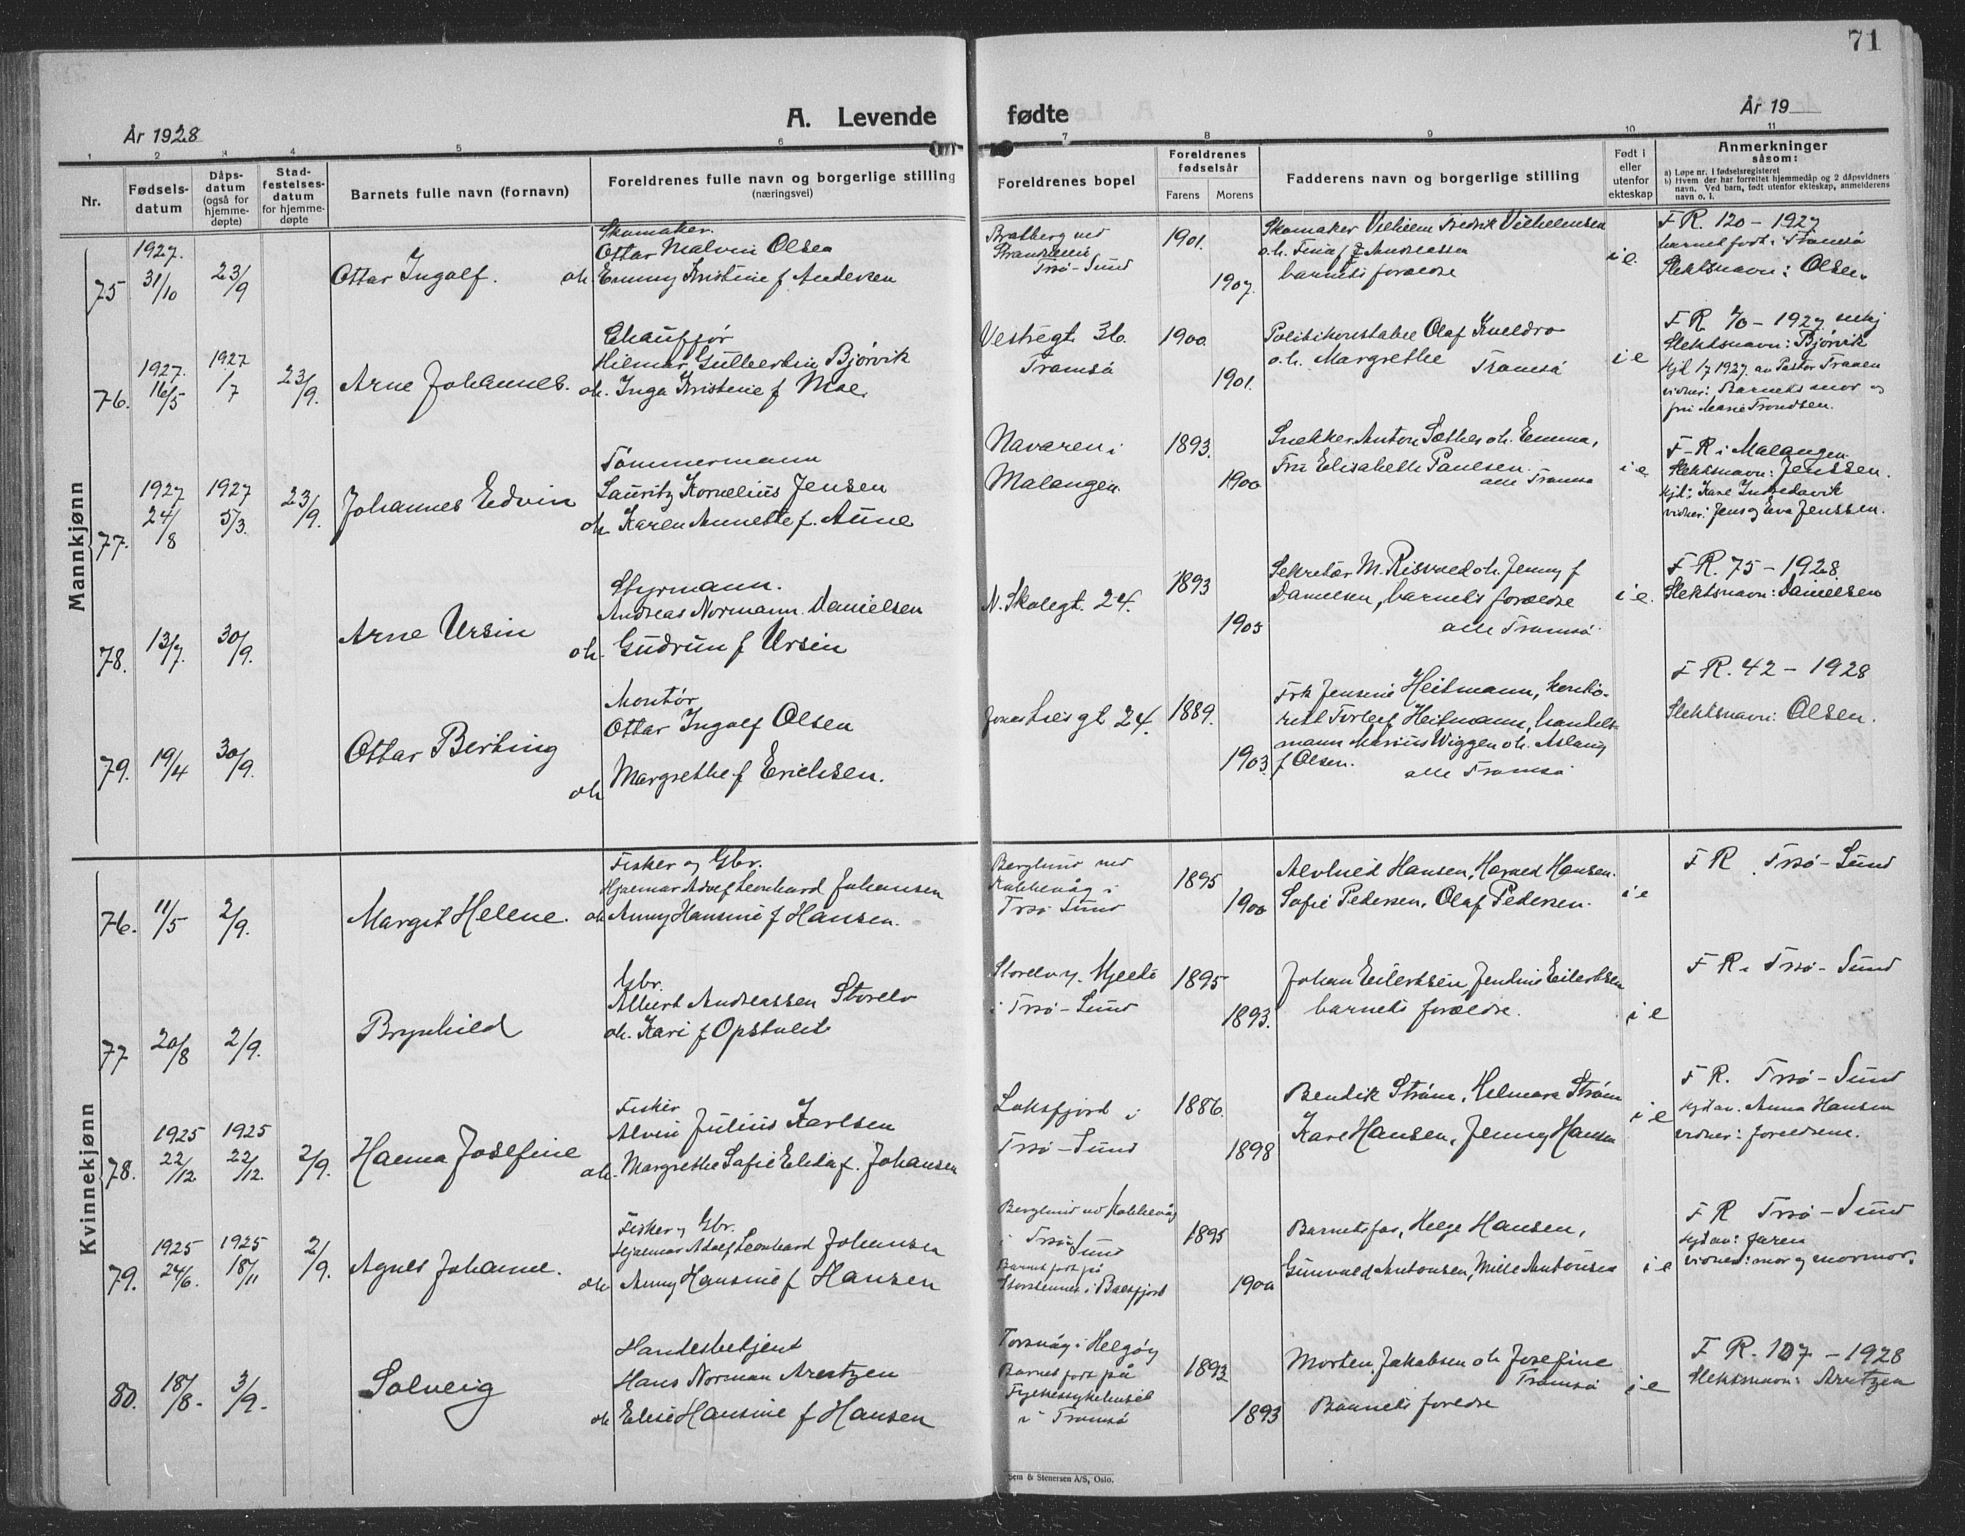 71
A. Levende fødte
År 1928
År 19
1 2 3 4 5 6 7 8 9 10 11
Nr.
Fødsels-
datum
Dåps-
datum
(også for
hjemme-
døpte)
Stad-
festelses-
datum
for hjemme-
døpte
Barnets fulle navn (fornavn)
Foreldrenes fulle navn og borgerlige stilling
(næringsvei)
Foreldrenes bopel
Foreldrenes
fødselsår
Farens Morens
Fadderens navn og borgerlige stilling
Født i
eller
utenfor
ekteskap
Anmerkninger
såsom:
a) Løpe nr. i fødselsregisteret
b) Hvem der har forrettet hjemmedåp og 2 dåpsvidners
navn. Ved barn, født utenfor ekteskap, anmelderens
navn o. l.
Mannkjønn
75
1927.
31/10
23/9
Ottar Ingolf.
Skomaker.
Ottar Malvin Olsen
oh. Emmy Kristine f Andersen
Bratberg ved
Strandmis
Tsø-Sund
1901.
1907.
Skomaker Vilhelm Fredrik Vilhelmsen
o.h. Fina f Andreassen
barnets foreldre
i e.
F R. 120 - 1927
barnet født i Tromsø
Slektsnavn: Olsen.
76.
1927.
16/5
1927
1/7
23/9.
Arne Johannes.
Chauffør
Hilmar Gulbertin Bjørvik
oh. Inga Kristine f Moe.
Vestregt. 36.
Tromsø
1900.
1901.
Politikonstabel Olaf Kveldro
o.h. Margrethe Tromsø
i e
F R. 70 - 1927
Slektsnavn: Bjørvik
Hjd. 1/7 1927. av Pastor Tranen
vidner: Barnets mor og
frk Marie Trondsen.
77.
1927
24/8
1927
5/3.
23/9.
Johannes Edvin
Tømmermann
Lauritz Kornelius Jensen
oh. Karen Annette f. Aune
Navaren i
Malangen.
1893.
1900
Snekker Anton Sæther oh. Emma,
Fru Elisabeth Paulsen.
alle Tromsø
i e
F-R i Malangen
Slektsnavn: Jenssen.
vidner: Jens og Eva Jenssen.
78.
13/7
30/9.
Arne Ursin
Styrmann.
Andreas Normann Danielsen
oh. Gudrun f Ursin
N. Skolegt. 24.
1893
1905
Sekretær M. Risvold oh. Jenny f
Danielsen, barnets foreldre
alle Tromsø
i e.
F R. 75 - 1928
Slektsnavn: Danielsen
79.
19/4
30/9.
Ottar Berting
Montør
Ottar Ingolf Olsen
oh Margrethe f Erichsen.
Jonas Liesgt 24.
1889.
1903.
Frk Jensine Heitmann, kontorist
Torleif Heitmann, handelsmann
Marius Wiggen oh. Aslaug
f Olsen. alle Tromsø
F R. 42 - 1928
Slektsnavn: Olsen.
Kvinnekjønn
76.
11/5
2/9.
Margit Helene.
Fisker og Gbr.
Hjalmar Adolf Leonhard Johansen
oh Anny Hansine f Hansen.
Berglund ved
Kobbevåg i
Tsø Sund
1895
1900
Alvhild Hansen, Harald Hansen.
Sofie Pedersen, Olaf Pedersen.
i e
F R. Tsø-Sund
77
20/8
2/9.
Brynhild
Gbr.
Albert Andreassen Storelv
oh. Kari f Opstveit
Storelv y. Mjelde
i Tsø-Sund
1895
1893.
Johan Eilertsen, Jentine Eilertsen
barnets foreldre.
i e
F R. Tsø-Sund
78.
1925
22/12.
1925
22/12.
2/9.
Hanna Josefine
Fisker
Alvin Julius Karlsen
oh. Margrethe Sofie Elida f. Johansen
Laksfjord i
Tsø-Sund
1886.
1898
Bendik Strøm, Helmara Strøm
Kare Hansen, Jenny Hansen
i e
F R. Tsø-Sund
Hjd av. Anna Hansen
vidner: foreldrene.
79.
1925
24/6.
1925
18/11
2/9.
Agnes Johanne.
Fisker og Gbr.
Hjalmar Adolf Leonhard Johansen
oh Anny Hansine f Hansen
Berglund ved Kobbevåg
i Tsø-Sund
Barnet født på
Storstennes i Balsfjord
1895
1900
Barnets far, Helge Hansen,
Gunvald Antonsen, Mille Antonsen
i e
F R Tsø-Sund
Hjd av: faren
vidner: mor og mormor.
80.
18/8-
3/9-
Solveig
Handelsbetjent
Hans Norman Arentzen
oh Elise Hansine f Hansen
Torsvåg i Helgøy
Barnet født på
Fylkessykehuset
i Tromsø
1893
1893
Morten Jakobsen oh Josefine
Tromsø
Barnets foreldre
i e
F R. 107 - 1928
Slektsnavn: Arntzen
& Stenersen A/S, Oslo.